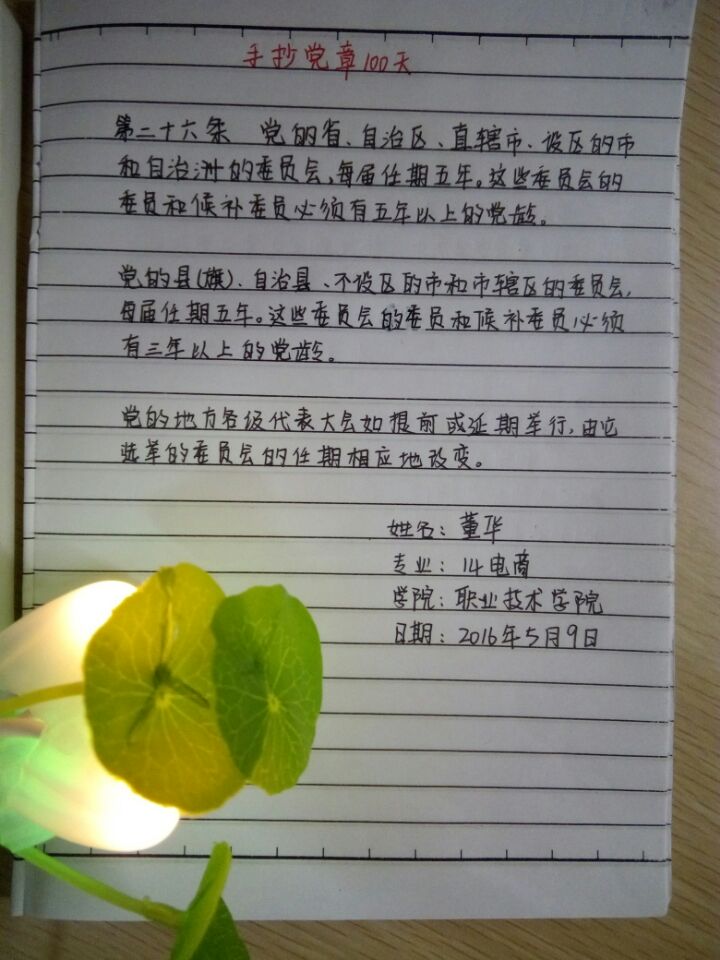 手抄党章100天
第二十六条 党的省、自治区、直辖市、设区的市
和自治洲的委员会,每届任期五年。这些委员会的
委员和候补委员必须有五年以上的党龄。
党的县(旗)、自治县、不设区的市和市辖区的委员会,
每届任期五年。这些委员会的委员和候补委员必须
有三年以上的党龄。
党的地方各级代表大会如提前或延期举行,由它
选举的委员会的任期相应地改变。
姓名:董华
专业:14电商
学院:职业技术学院
日期:2016年5月9日